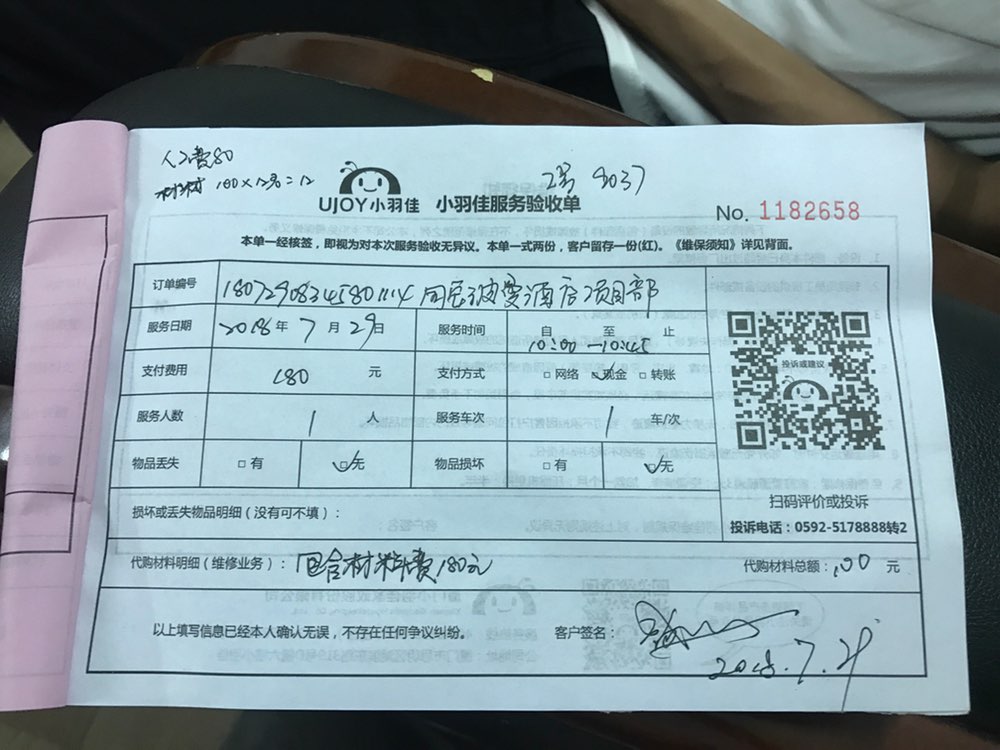 人工费80
2号 8037
UJOY小羽佳 小羽佳服务验收单
No. 1182658
本单一经核签，即视为对本次服务验收无异议。本单一式两份，客户留存一份(红)。《维保须知》详见背面。
订单编号
酒店项目部
服务日期 2018年 7 月 29日 服务时间 自 至 止
10:00—10:45
支付费用 180 元 支付方式 □网络 □现金 □转账
服务人数 1 人 服务车次 1 车/次
物品丢失 □有 □无 物品损坏 □有 □无
投诉或建议
扫码评价或投诉
投诉电话：0592-5178888转2
损坏或丢失物品明细（没有可不填）：
代购材料明细（维修业务）： 包含材料费180元 代购材料总额： 100 元
以上填写信息已经本人确认无误，不存在任何争议纠纷。 客户签名：
2018.7.29